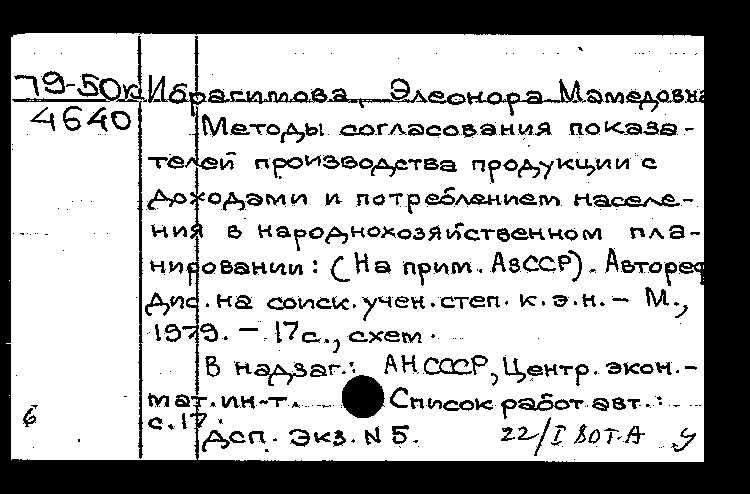 79-50к Ибрагимова, Элеонора Мамедовна
4640 Методы согласования показа-
телей производства продукции с
доходами и потреблением населе-
ния в народнохозяйственном пла-
нировании: (На прим. АзССР). Автореф
дис. на соиск. учен. степ. к.э.н. – М.,
1979. – 17с., схем.
В надзаг.: АН СССР, Центр. экон.-
мат. ин-т. Список работ авт.:
6 с.17.
ДСП. Экз. N 5. 22/I 80т. А